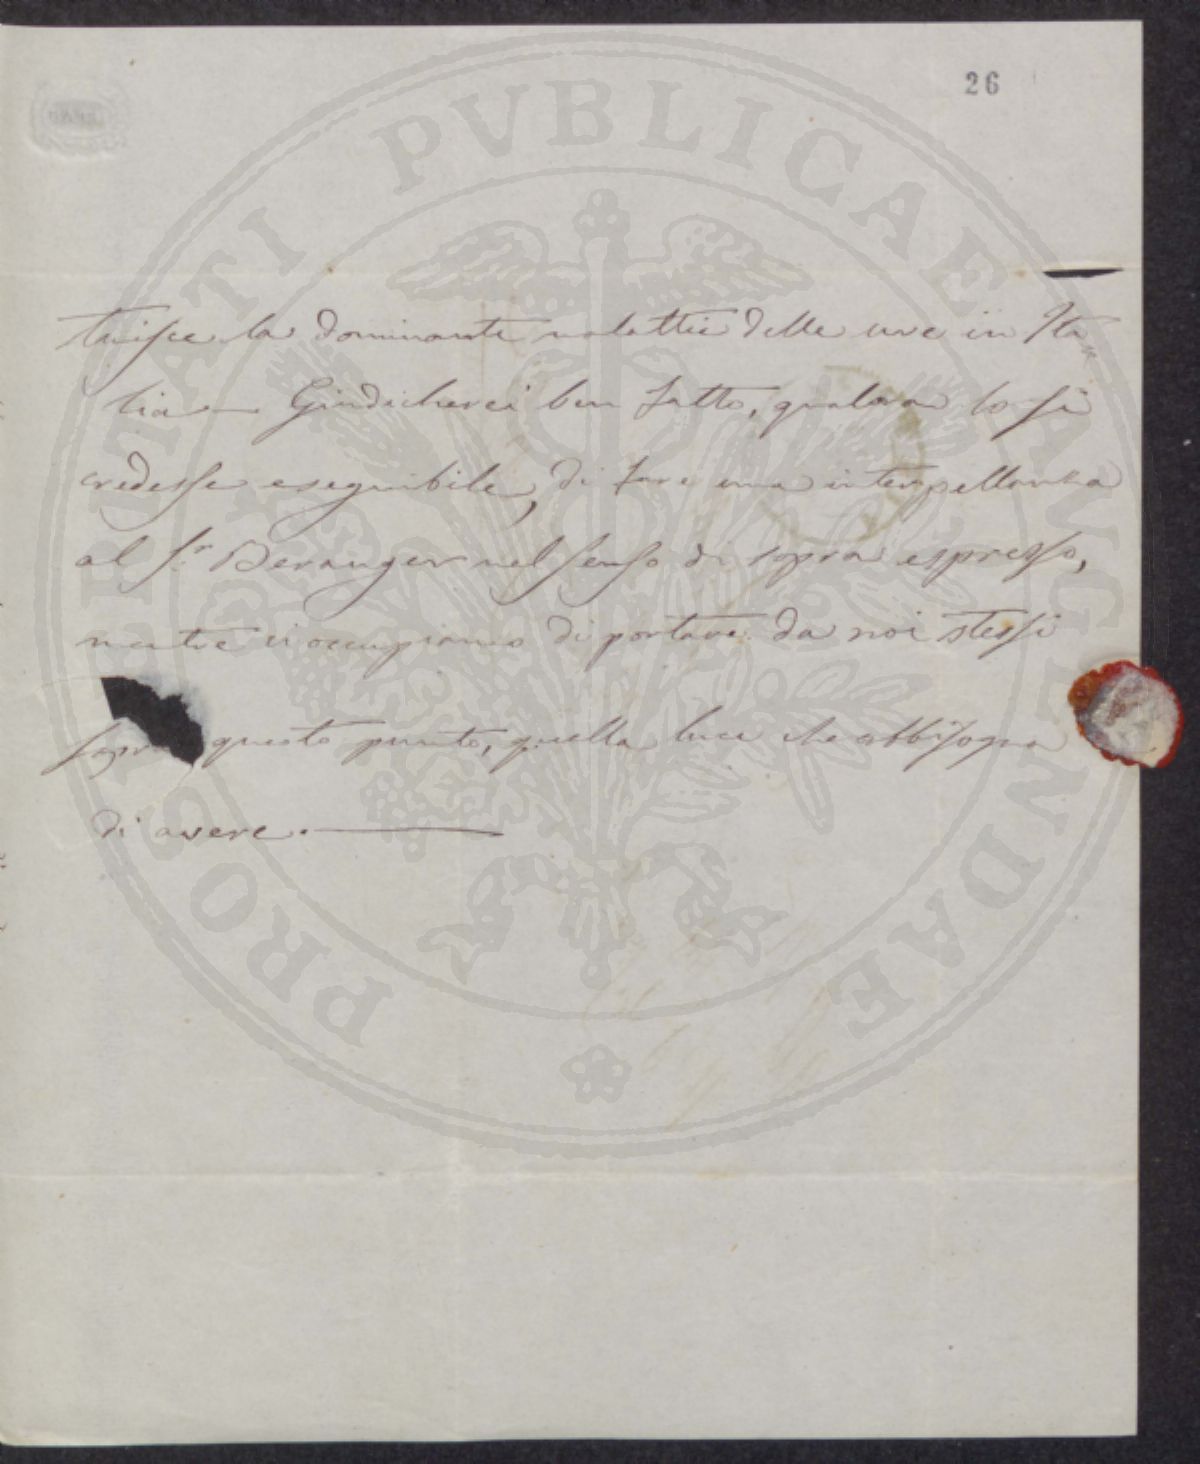 26
PROSPERITATI PVBLICAE AVGENDAE
tuisce la dominante malattia delle uve in Ita
lia — Giudicherei ben fatto, qualora lo si
credesse eseguibile, di fare una interpellanza
al Sr. Beranger nel senso di sopra espresso,
mentre ci occupiamo di portare da noi stessi
sopra questo punto, quella luce che abbisogna
di avere. —